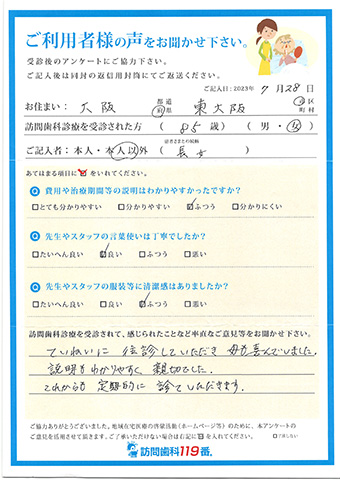 ご利用者様の声をお聞かせ下さい。
受診後のアンケートにご協力下さい。
ご記入後は同封の返信用封筒にてご返送ください。
ご記入日：2023年 7月28日
お住まい： 大阪 都道府県 東大阪 市区町村
訪問歯科診療を受診された方 （ 85 歳） （ 男・女 ）
ご記入者：本人・本人以外 （ 長女 ）
あてはまる項目に☑をいれてください。
Q 費用や治療期間等の説明はわかりやすかったですか？
□とても分かりやすい □分かりやすい ☑ふつう □分かりにくい
Q 先生やスタッフの言葉使いは丁寧でしたか？
□たいへん良い ☑良い □ふつう □悪い
Q 先生やスタッフの服装等に清潔感はありましたか？
□たいへん良い □良い ☑ふつう □悪い
訪問歯科診療を受診されて、感じられたことなど率直なご意見等をお聞かせ下さい。
ていねいに往診していただき 母も喜んでいました。
説明もわかりやすく 親切でした。
これからも 定期的に 診ていただきます。
ご協力ありがとうございました。地域在宅医療の啓蒙活動（ホームページ等）のために、本アンケートの
ご意見を活用させて頂きます。ご了承いただけない場合は右記に☑を入れてください。 □了承しない
訪問歯科119番。